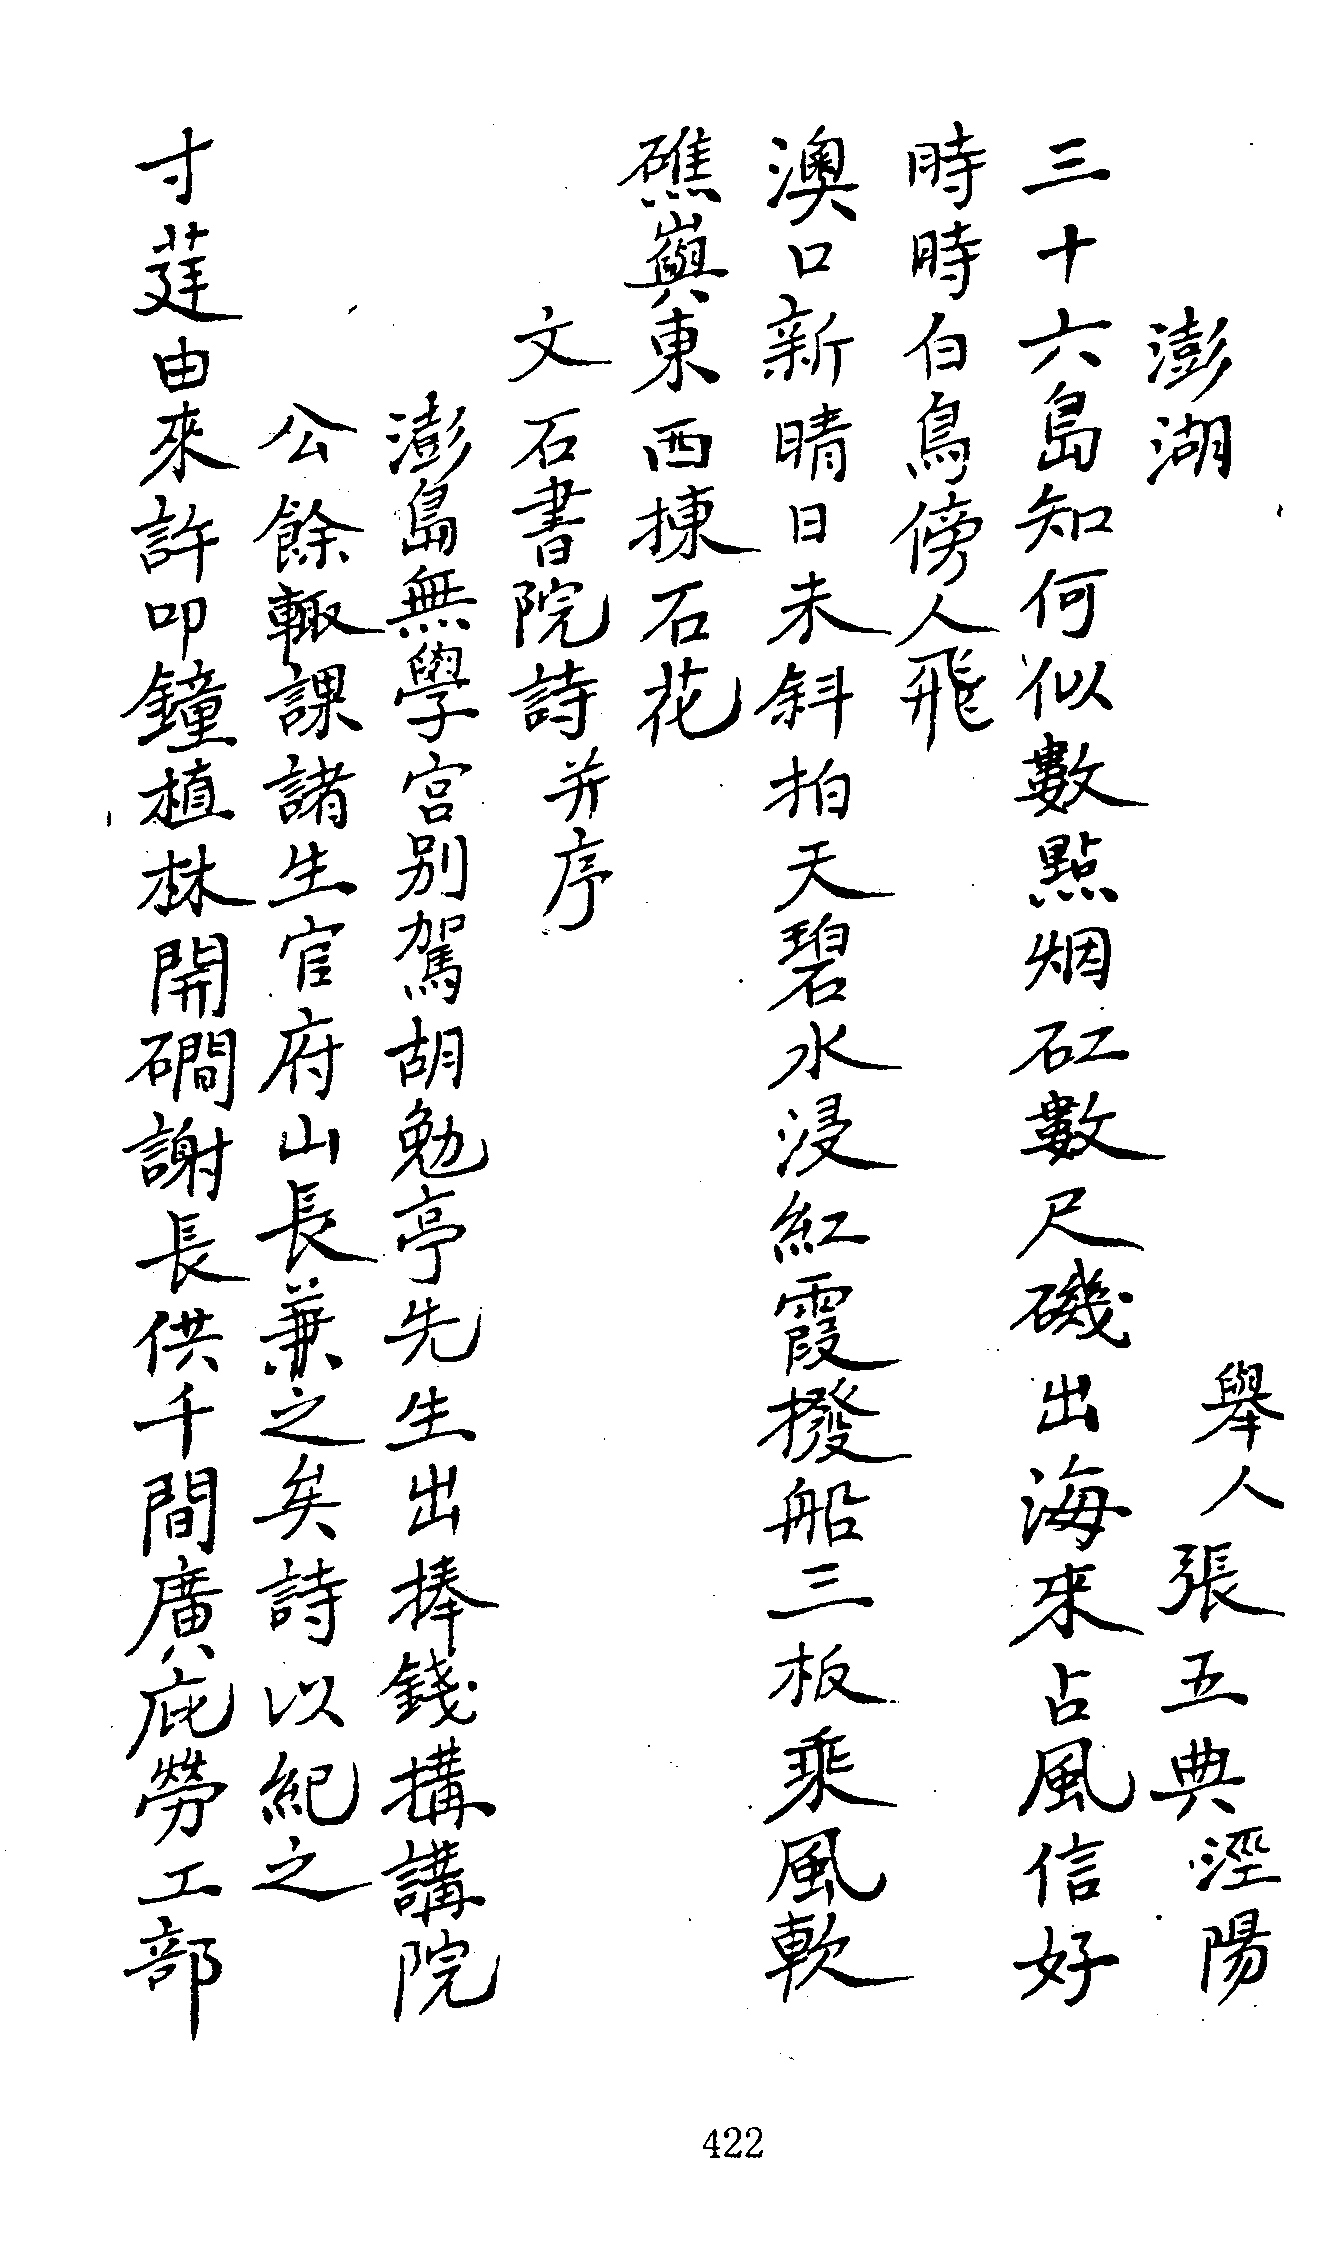 澎湖
舉人張五典涇陽
三十六島知何似數點烟矼數尺磯出海來占風信好
時時白鳥傍人飛
澳口新晴日未斜拍天碧水浸紅霞撥船三板乘風軟
礁嶼東西揀石花
文石書院詩并序
澎島無學宮別駕胡勉亭先生出捧錢搆講院
公餘輙課諸生官府山長兼之矣詩以紀之
寸莛由來許叩鐘植林開磵謝長供千間廣庇勞工部
422